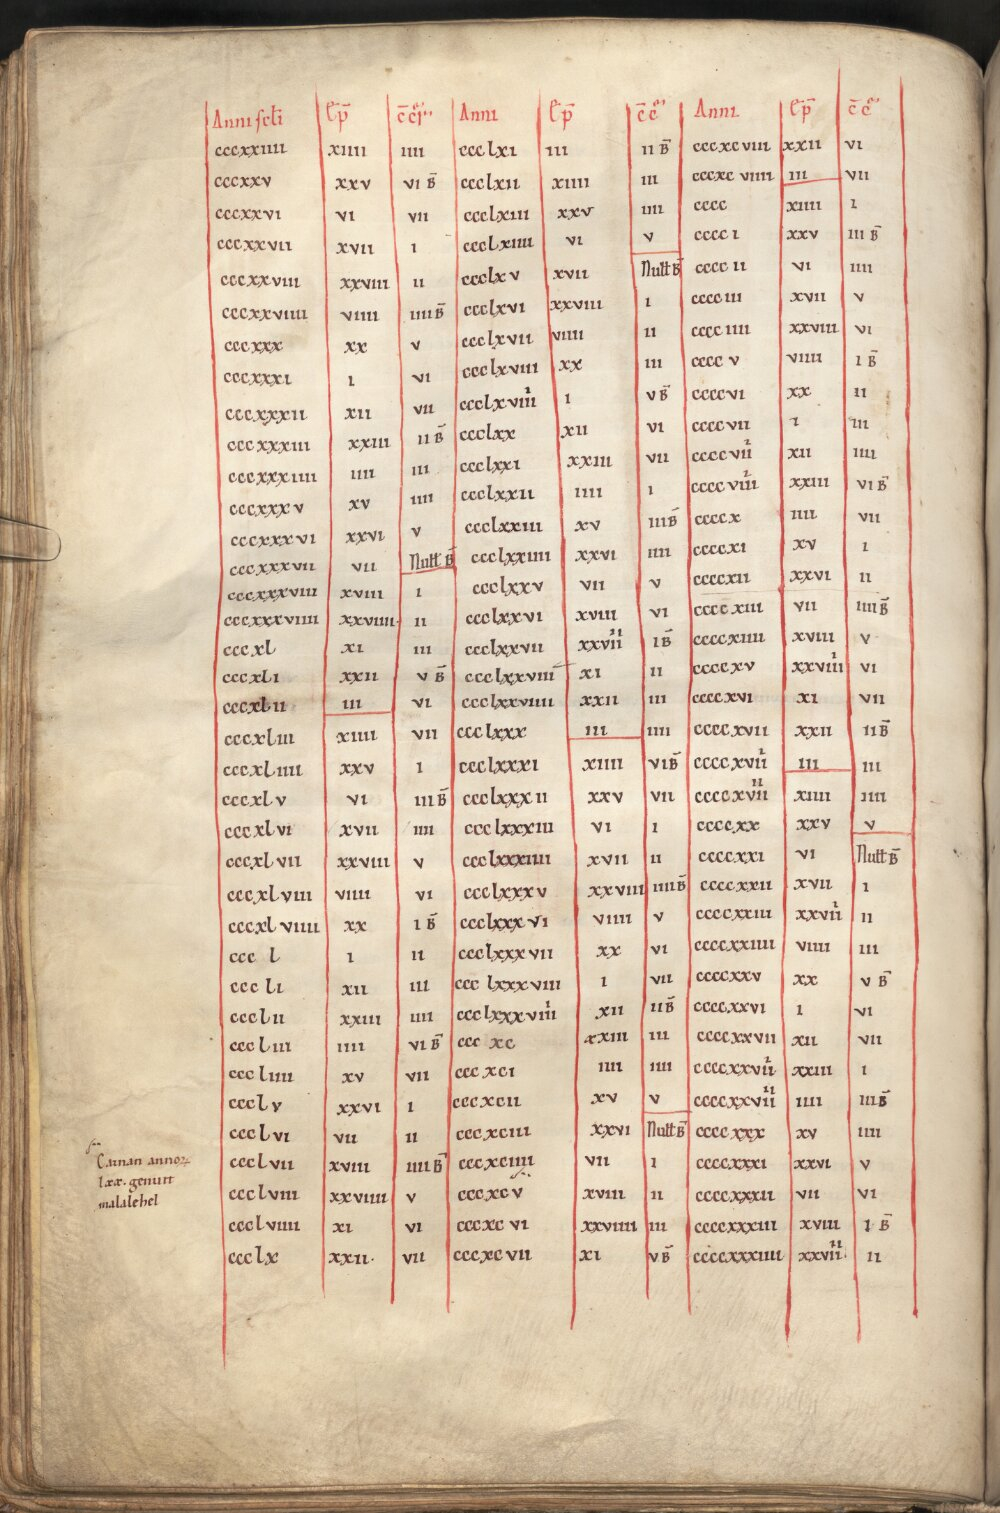 Anni scl̄i Ep̄ c̄c̄i Anni Ep̄ c̄c̄ Anni Ep̄ c̄c̄
cccxxiiii xiiii iiii ccclxi iii ii B̄ cccxcviii xxii vi
cccxxv xxv vi B̄ ccclxii xiiii iii cccxcviiii iii vii
cccxxvi vi vii ccclxiii xxv iiii cccc xiiii i
cccxxvii xvii i ccclxiiii vi v cccci xxv iii B̄
cccxxviii xxviii ii ccclxv xvii Null B̄ ccccii vi iiii
cccxxviiii viiii iiii B̄ ccclxvi xxviii i cccciii xvii v
cccxxx xx v ccclxvii viiii ii cccciiii xxviii vi
cccxxxi i vi ccclxviii xx iii ccccv viiii i B̄
cccxxxii xii vii ccclxviiii i v B̄ ccccvi xx ii
cccxxxiii xxiii ii B̄ ccclxx xii vi ccccvii i iii
cccxxxiiii iiii iii ccclxxi xxiii vii ccccviii xii iiii
cccxxxv xv iiii ccclxxii iiii i ccccviiii xxiii vi B̄
cccxxxvi xxvi v ccclxxiii xv iii B̄ ccccx iiii vii
cccxxxvii vii Null B̄ ccclxxiiii xxvi iiii ccccxi xv i
cccxxxviii xviii i ccclxxv vii v ccccxii xxvi ii
cccxxxviiii xxviiii ii ccclxxvi xviii vi ccccxiii vii iiii B̄
cccxl xi iii ccclxxvii xxviiii i B̄ ccccxiiii xviii v
cccxli xxii v B̄ ccclxxviii xi ii ccccxv xxviiii vi
cccxlii iii vi ccclxxviiii xxii iii ccccxvi xi vii
cccxliii xiiii vii ccclxxx iii iiii ccccxvii xxii ii B̄
cccxliiii xxv i ccclxxxi xiiii vi B̄ ccccxviii iii iii
cccxlv vi iii B̄ ccclxxxii xxv vii ccccxviiii xiiii iiii
cccxlvi xvii iiii ccclxxxiii vi i ccccxx xxv v
cccxlvii xxviii v ccclxxxiiii xvii ii ccccxxi vi Null B̄
cccxlviii viiii vi ccclxxxv xxviii iiii B̄ ccccxxii xvii i
cccxlviiii xx i B̄ ccclxxxvi viiii v ccccxxiii xxviii ii
cccl i ii ccclxxxvii xx vi ccccxxiiii viiii iii
cccli xii iii ccclxxxviii i vii ccccxxv xx v B̄
ccclii xxiii iiii ccclxxxviiii xii ii B̄ ccccxxvi i vi
cccliii iiii vi B̄ cccxc xxiii iii ccccxxvii xii vii
cccliiii xv vii cccxci iiii iiii ccccxxviii xxiii i
ccclv xxvi i cccxcii xv v ccccxxviiii iiii iii B̄
ccclvi vii ii cccxciii xxvi Null B̄ ccccxxx xv iiii
ccclvii xviii iiii B̄ cccxciiii vii i ccccxxxi xxvi v
ccclviii xxviiii v cccxcv xviii ii ccccxxxii vii vi
ccclviiii xi vi cccxcvi xxviiii iii ccccxxxiii xviii i B̄
ccclx xxii. vii cccxcvii xi v B̄ ccccxxxiiii xxviiii. ii
Cainan annoꝝ
lxx. genuit
malalehel